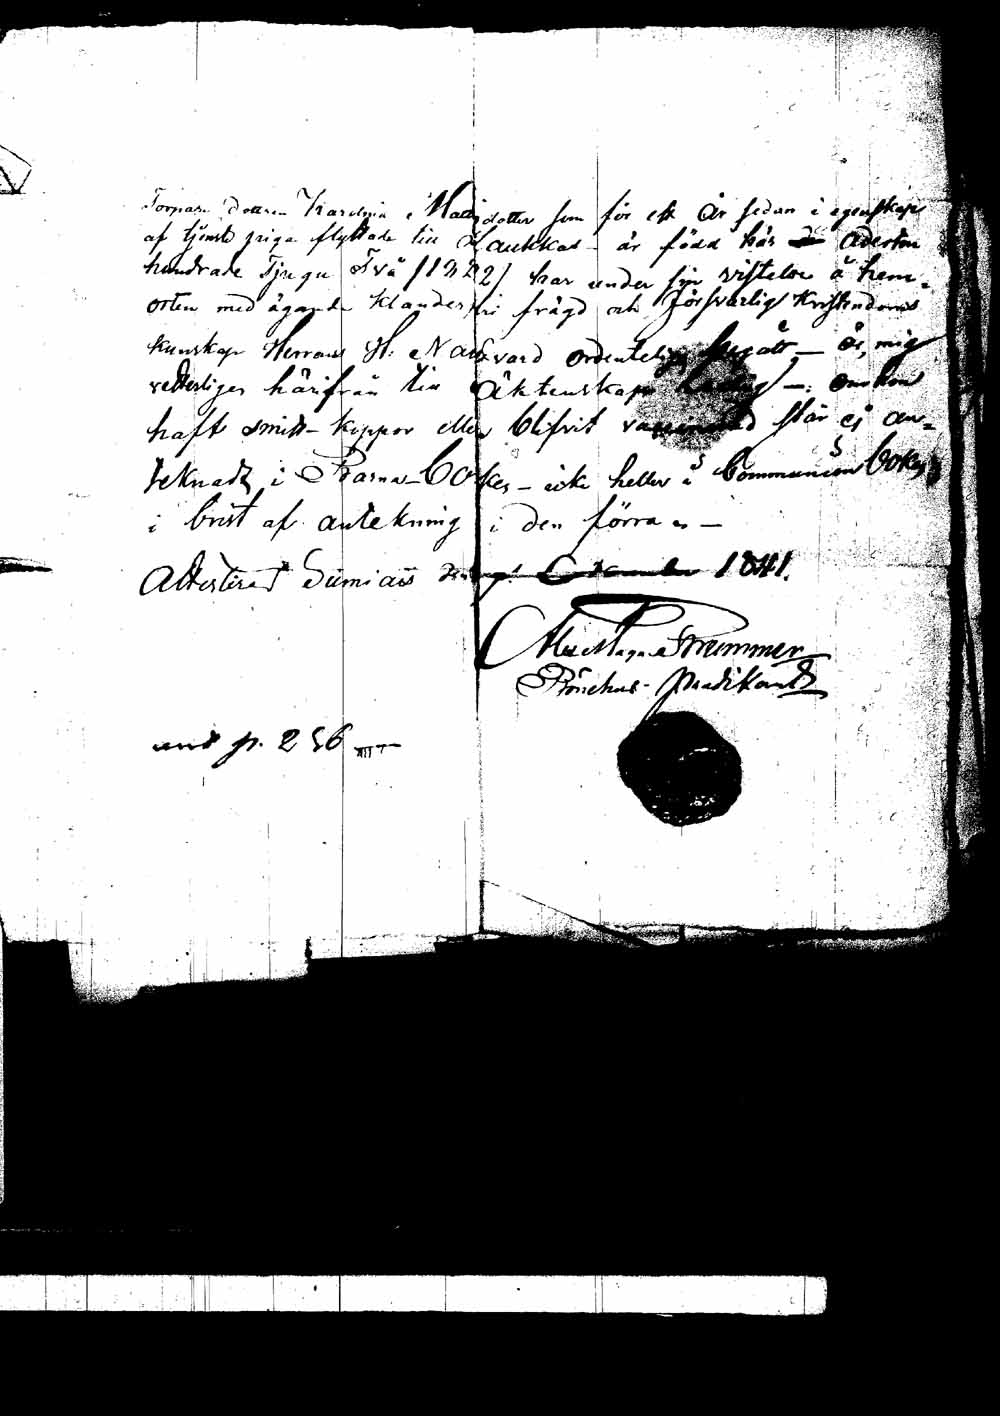 Torpare Dottren Karolina Mattsdotter som för ett År sedan i egenskap
af tjenste piga flyttade till Laukkas är född här Aderton
hundrade Tjugu Två /1822/ har under sin vistelse å hem-
orten med ägande klanderfri frägd och försvarlig Kristendoms
kunskap Herrans H: Nattvard ordenteligen begått — är, mig
vetterligen härifrån till Äktenskap ledig —; om hon
haft smitt-koppor eller blifvit vaccinerad står ej an-
teknadt i Barna-Boken - icke heller i Communion Boken
i brist af antekning i den förra —
Attesterad Sumiais 1841.
Alex Magn Brummer
Predikant
p. 256